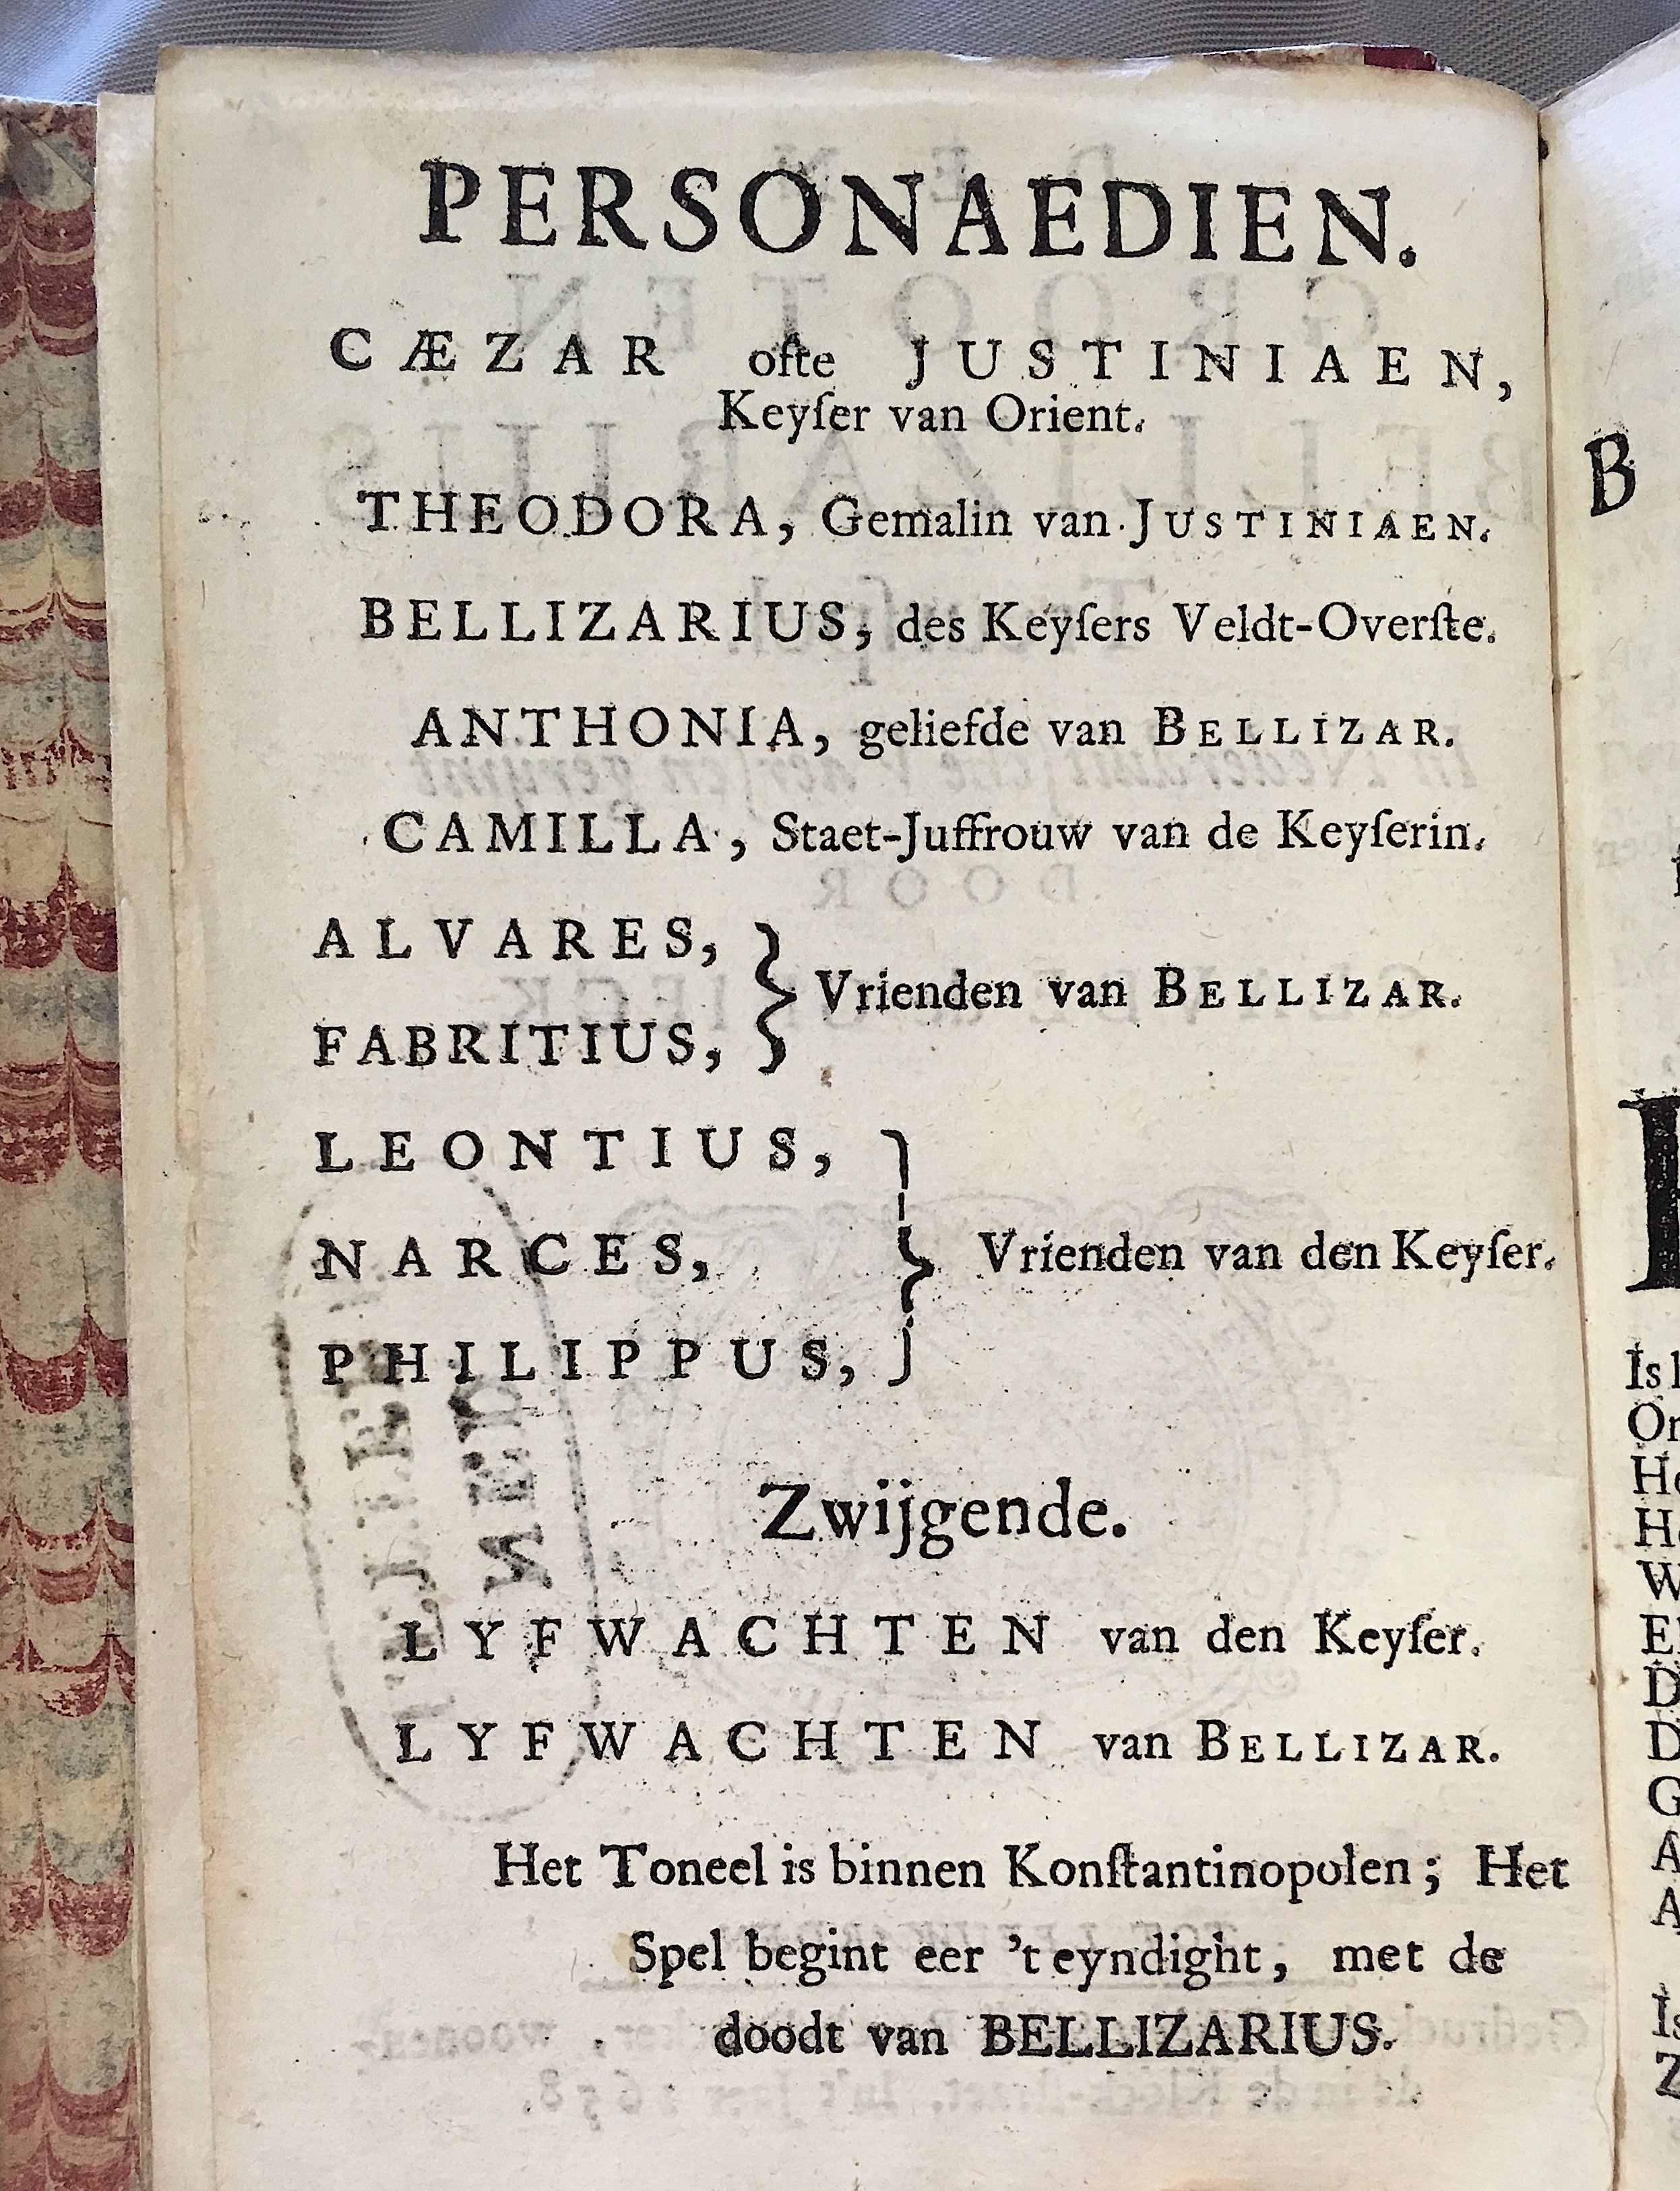 PERSONAEDIEN.
CÆZAR ofte JUSTINIAEN,
Keyſer van Orient.
THEODORA, Gemalin van JUSTINIAEN.
BELLIZARIUS, des Keyſers Veldt-Overſte.
ANTHONIA, geliefde van BELLIZAR.
CAMILLA, Staet-Juffrouw van de Keyſerin.
ALVARES,
FABRITIUS,
} Vrienden van BELLIZAR.
LEONTIUS,
NARCES,
PHILIPPUS,
} Vrienden van den Keyſer.
Zwijgende.
LYFWACHTEN van den Keyſer.
LYFWACHTEN van BELLIZAR.
Het Toneel is binnen Konſtantinopolen; Het
Spel begint eer 't eyndight, met de
doodt van BELLIZARIUS.